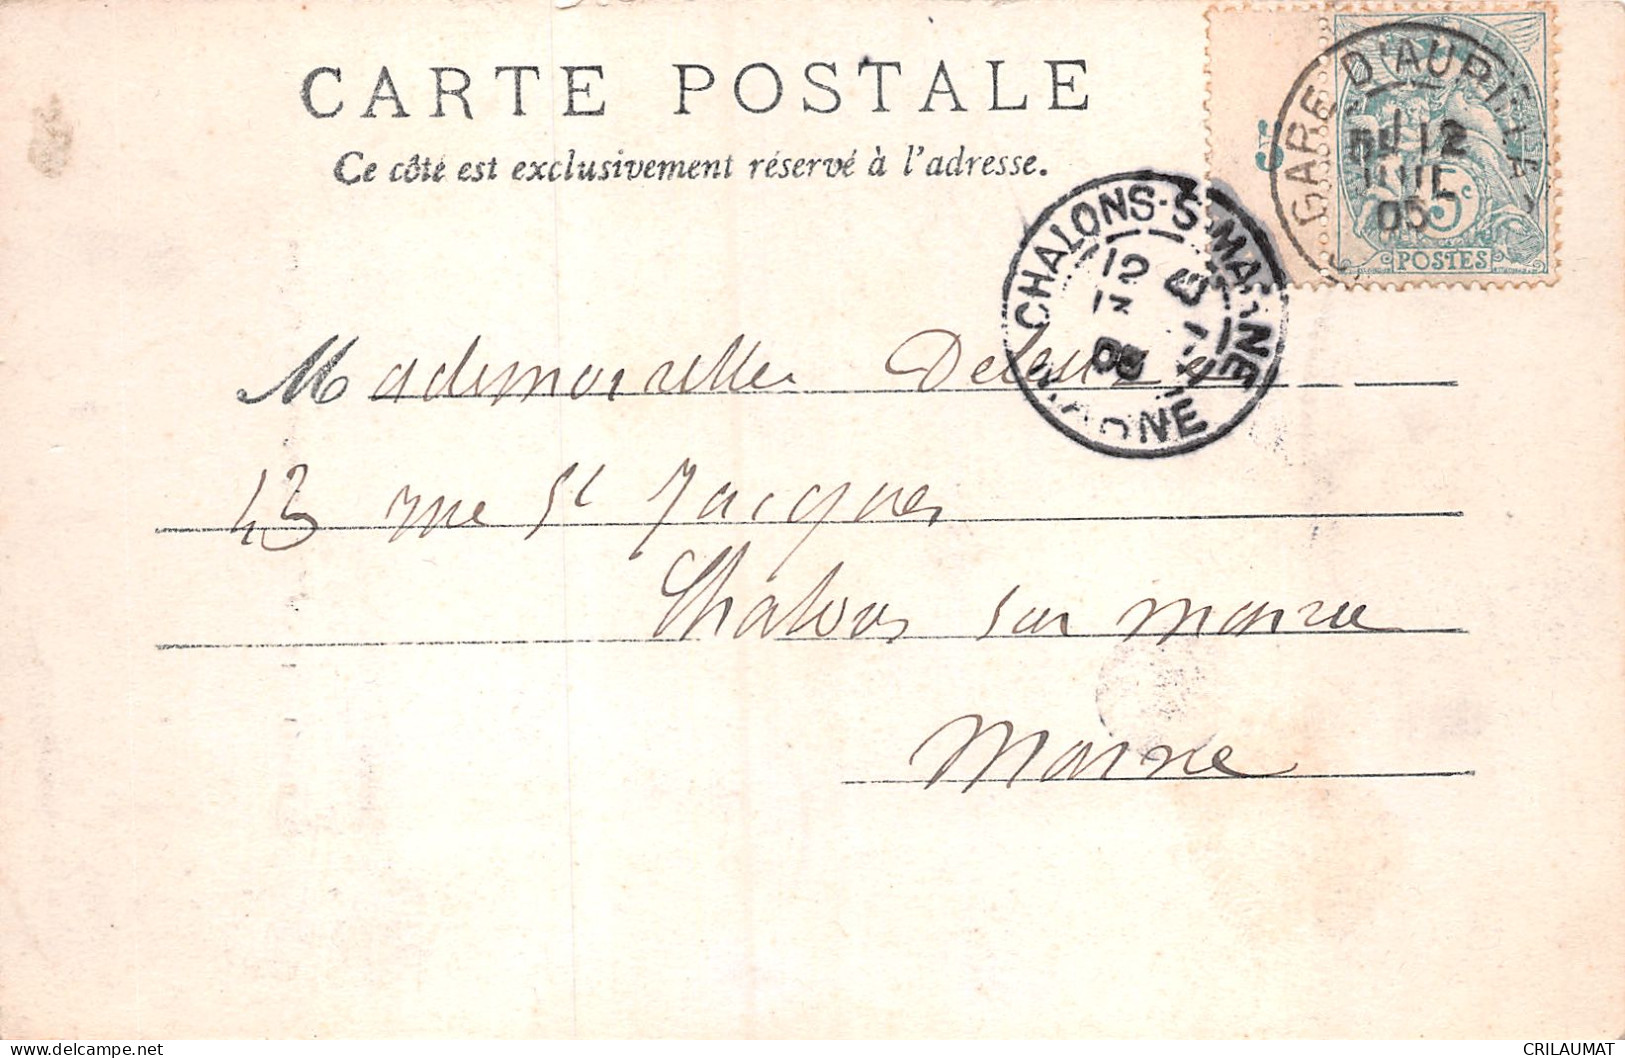 CARTE POSTALE
Ce côté est exclusivement réservé à l'adresse.
5
GARE D'AUBERIVE
12
JUIL
05
5c
POSTES
CHALONS-S-MARNE
12
MARNE
Mademoiselle
43 rue St Jacques
Chalons sur Marne
Marne
CRILAUMAT